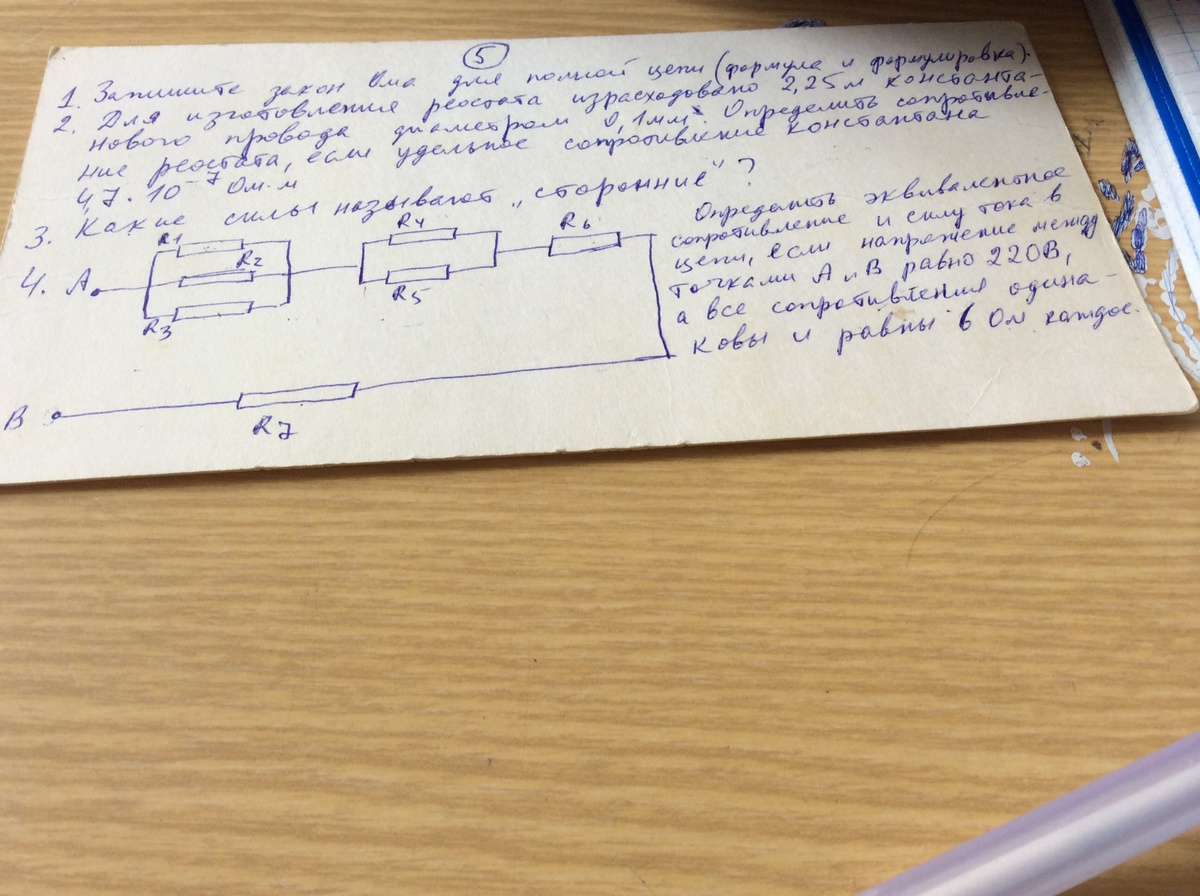 5
1. Запишите закон Ома для полной цепи (формула и формулировка).
2. Для изготовления реостата израсходовано 2,25 м константа-
нового провода диаметром 0,1мм. Определить сопротивле-
ние реостата, если удельное сопротивление константана
47 · 10⁻⁷ Ом·м
3. Какие силы называют „сторонние"?
4. A
R1
R2
R3
R4
R5
R6
Определить эквивалентное
сопротивление и силу тока в
цепи, если напряжение между
точками А и В равно 220В,
а все сопротивления одина-
ковы и равны 6 Ом каждое.
B
R7